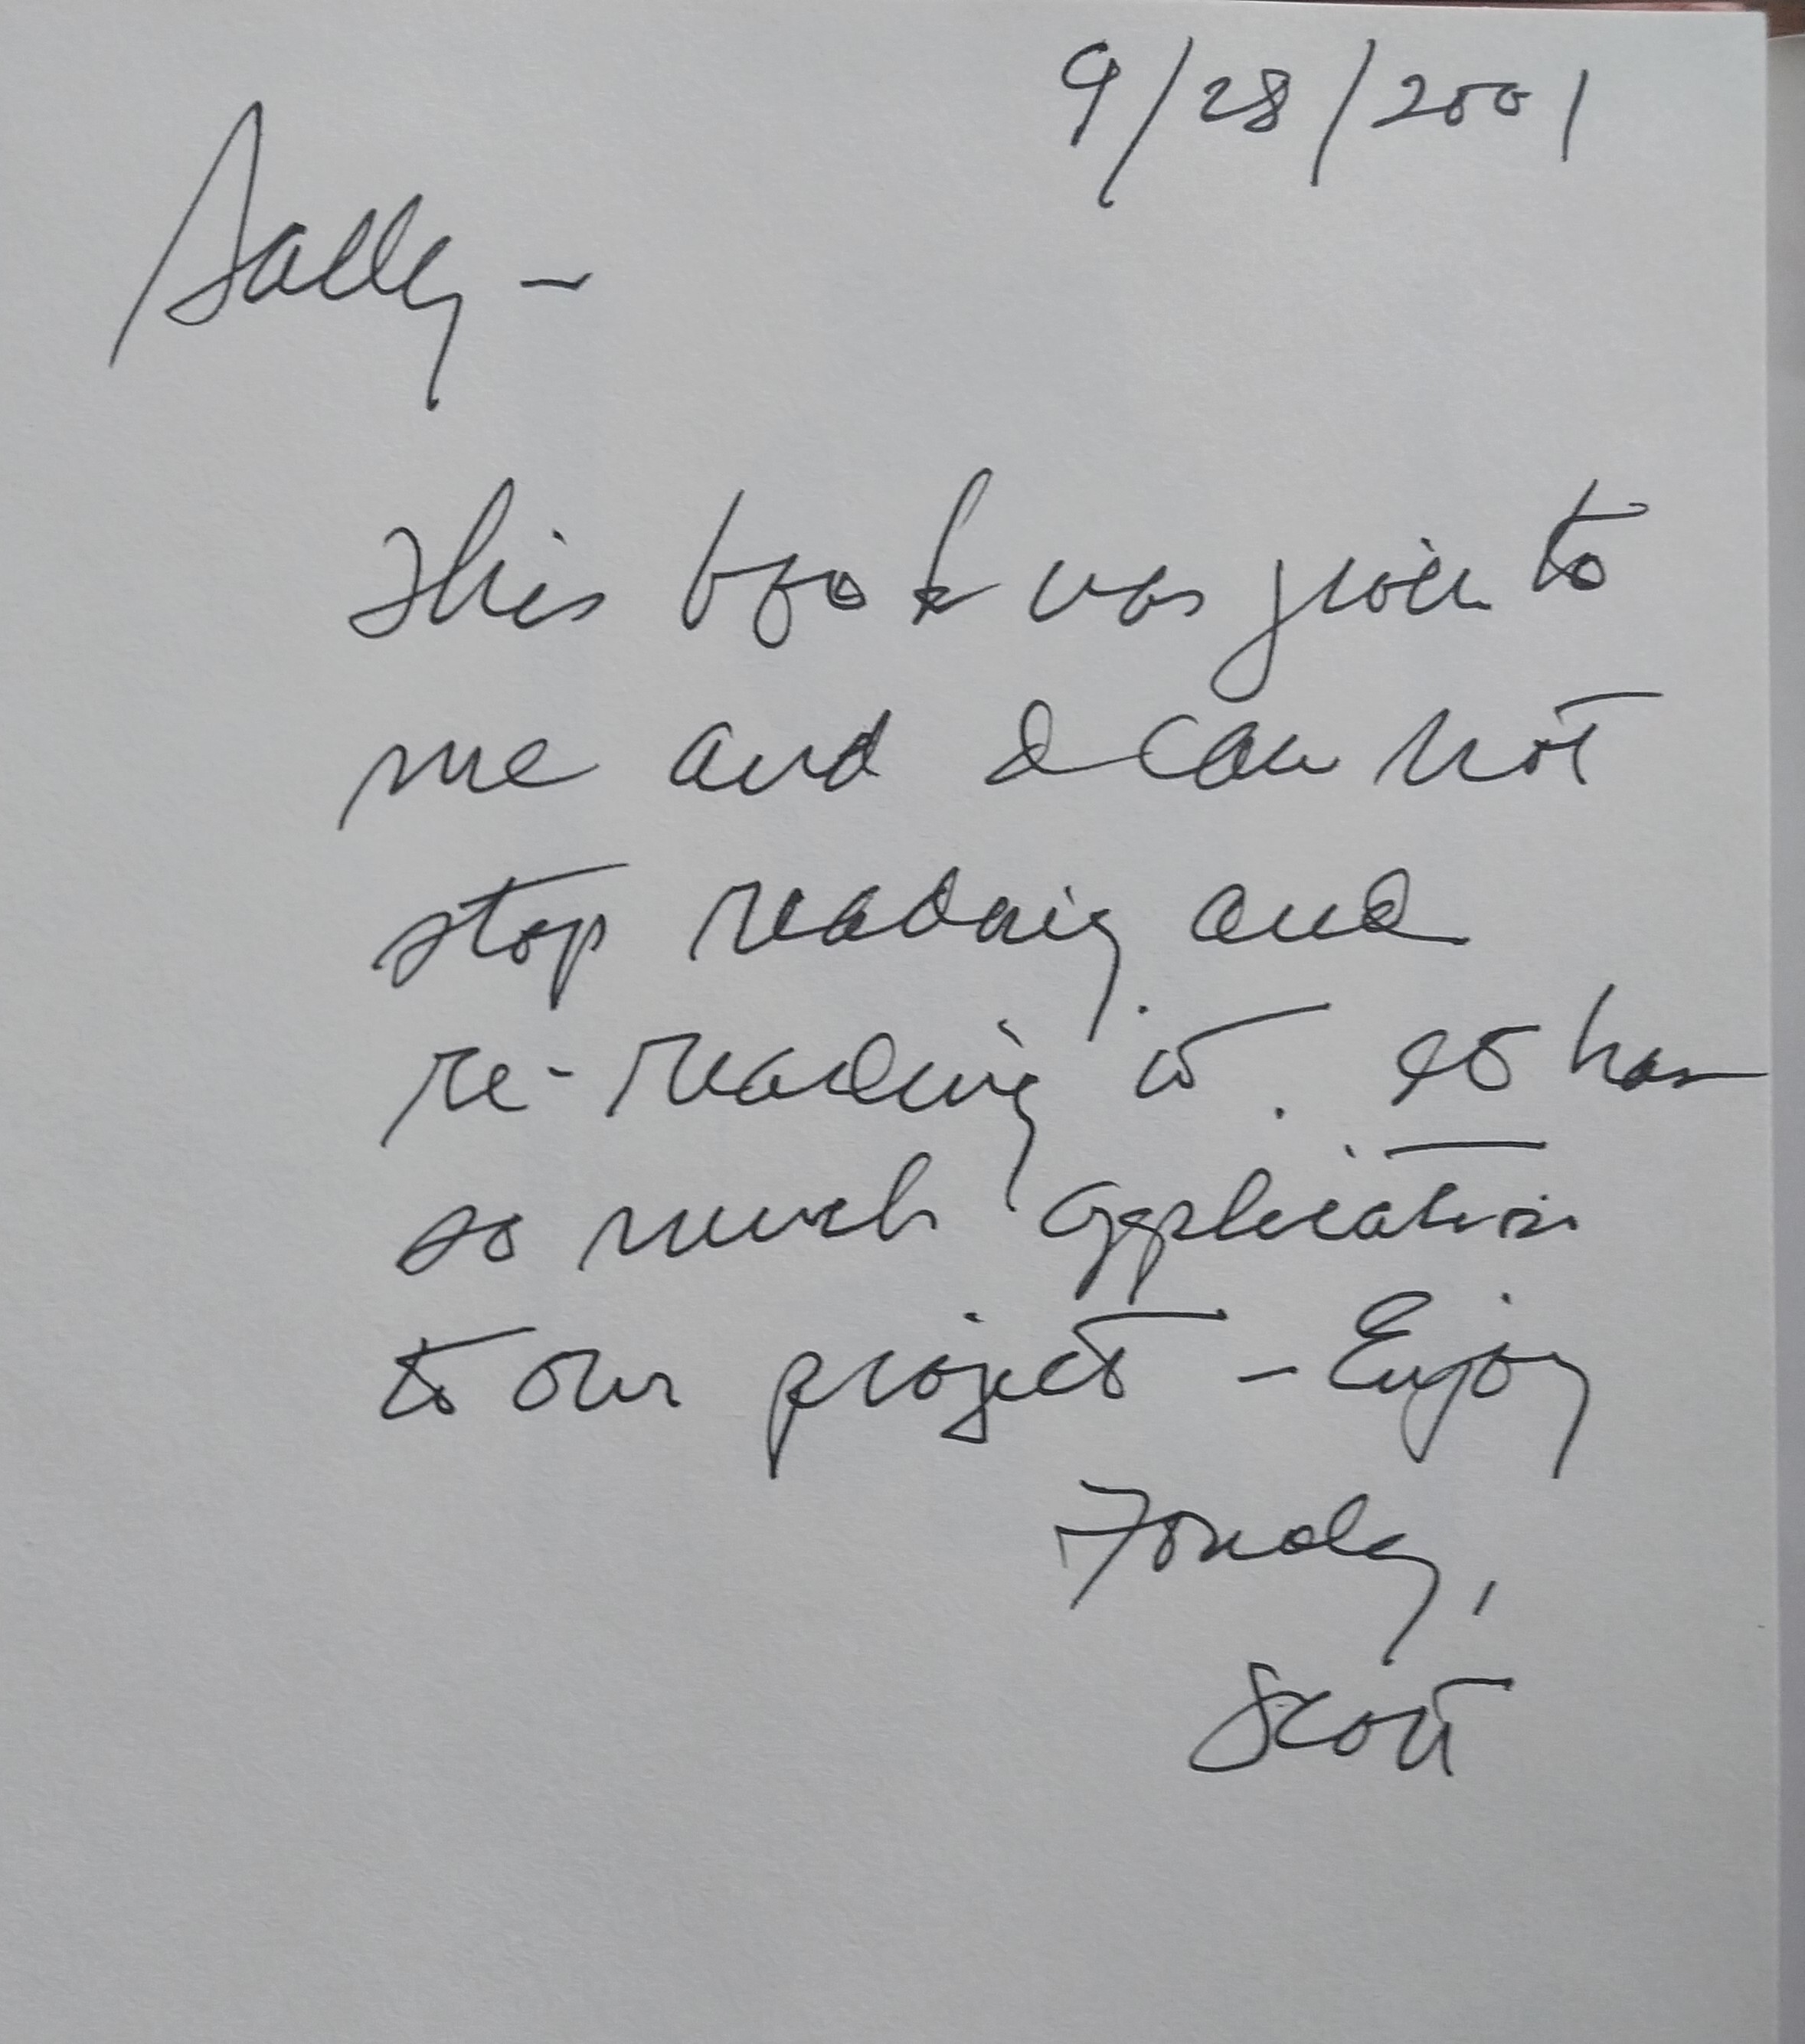 9/28/2001
Sally –
This book was given to
me and I can not
stop reading and
re-reading it. It has
so much application
to our project – Enjoy
Fondly,
Scott